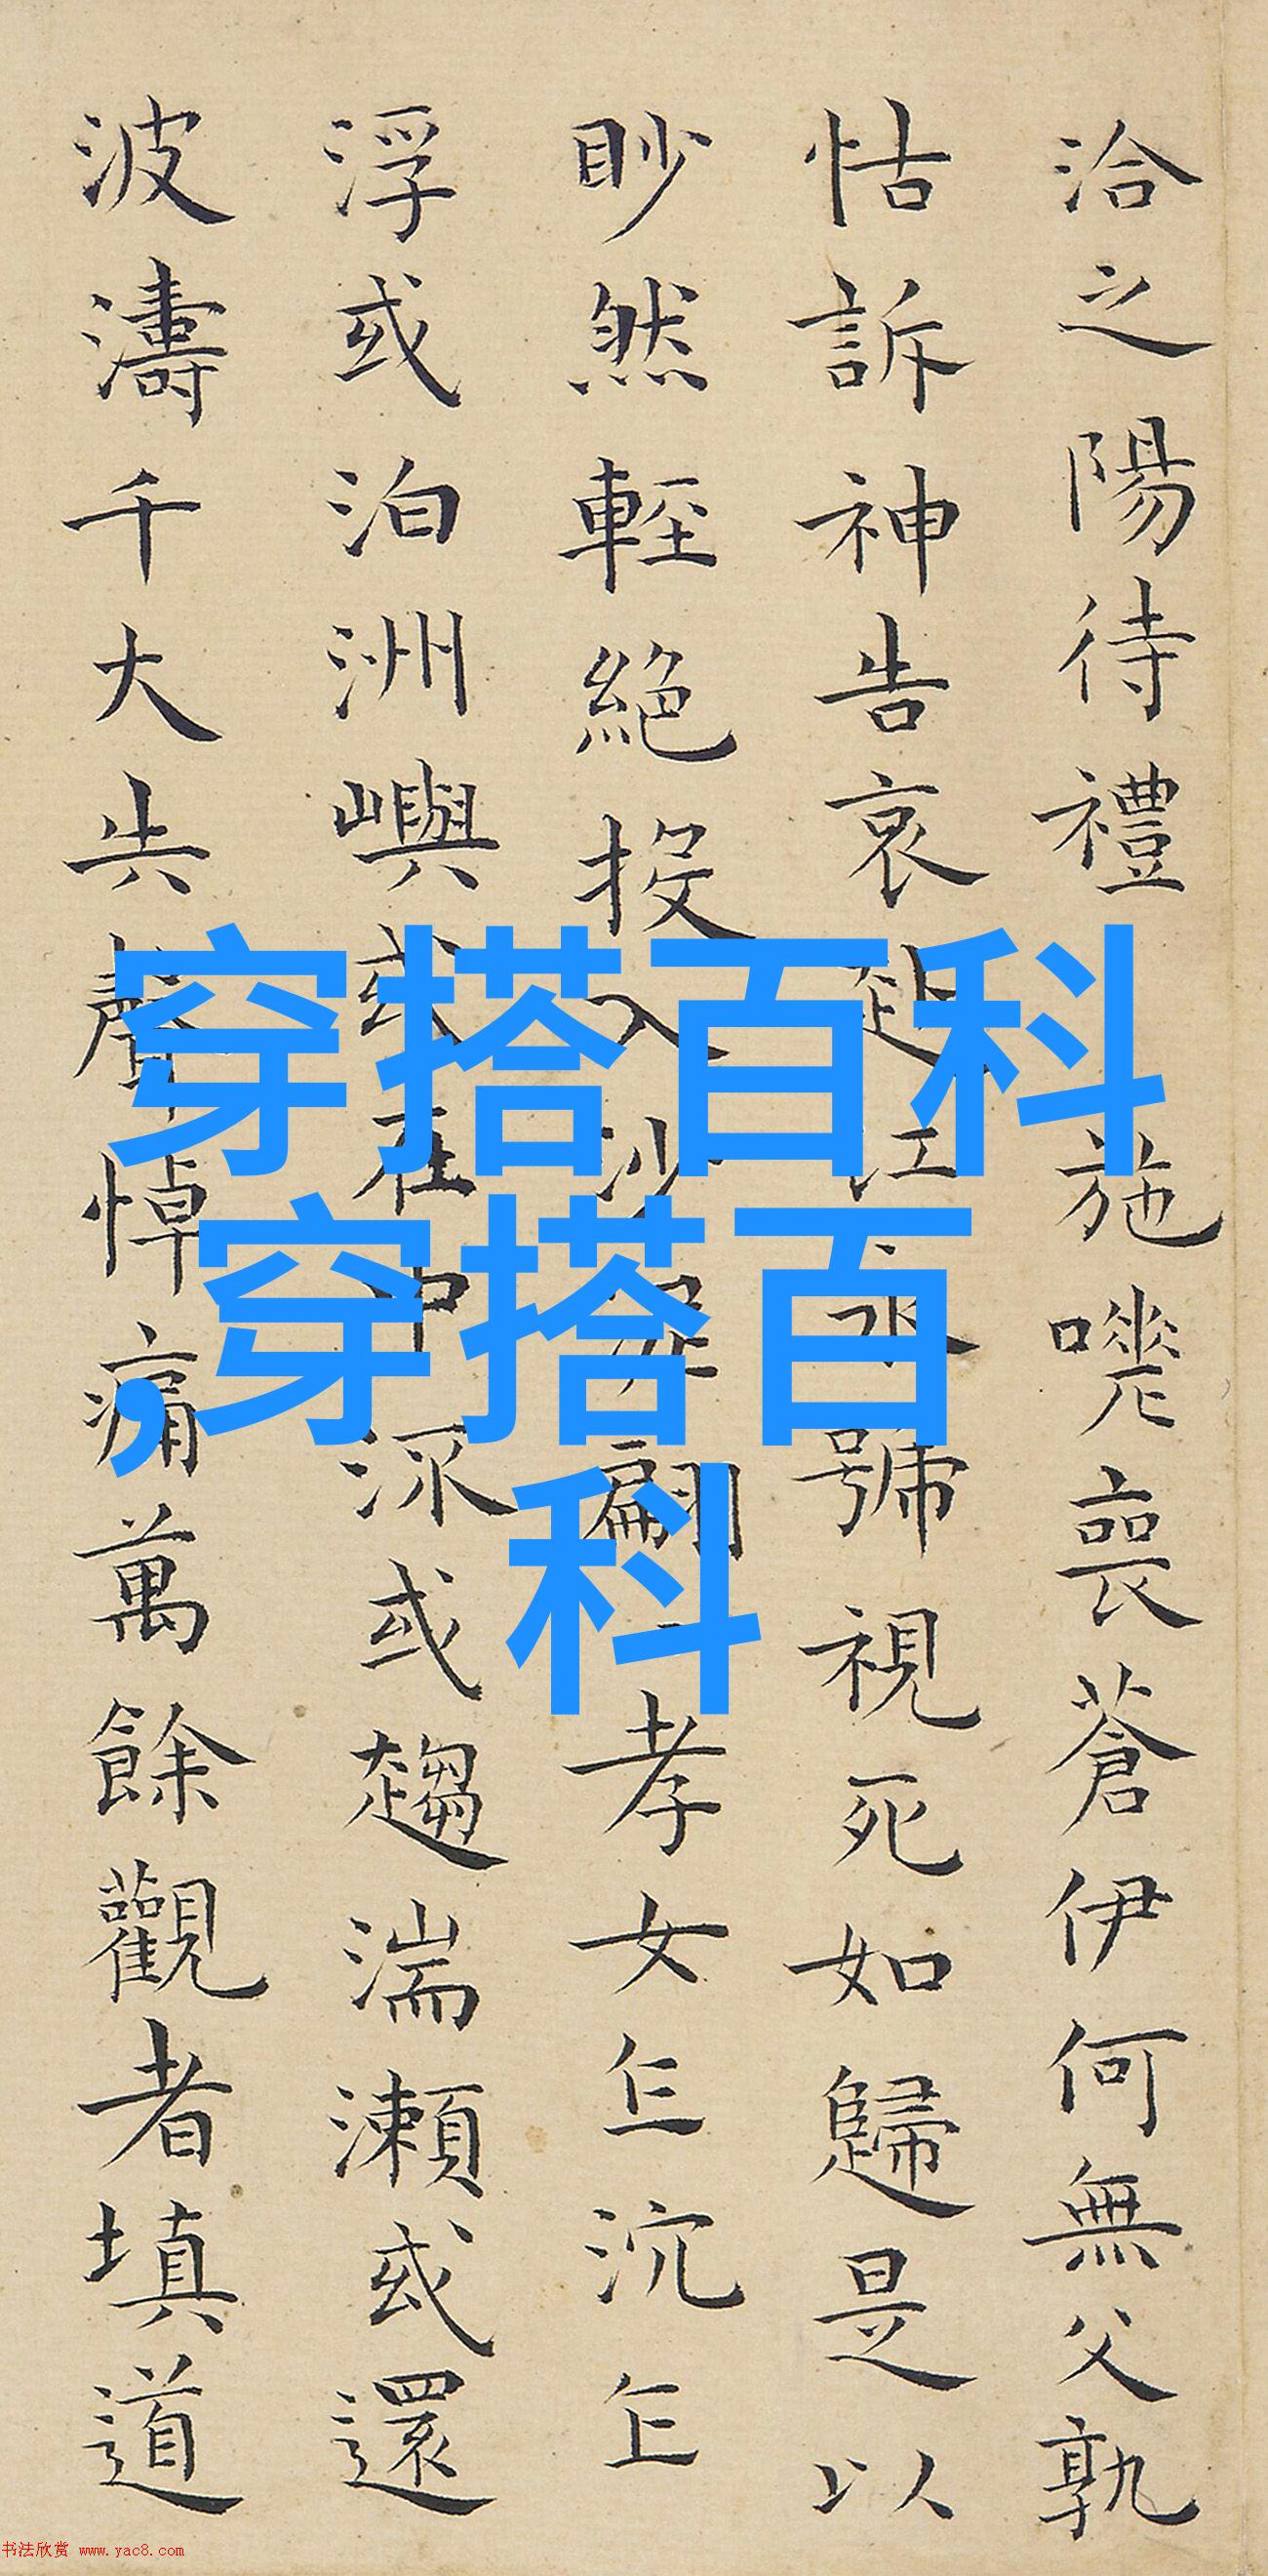 洽之陽待禮施嗟喪蒼伊何無父孰
怙訴神告哀赴江永號視死如歸是以
眇然輕絕投入沙泥翩孝女乍沉乍
浮或泊洲嶼或在中流或趨湍瀨或還
波濤千大失聲悼痛萬餘觀者填道
穿搭百科
,穿搭百
科
书法欣赏 www.yac8.com